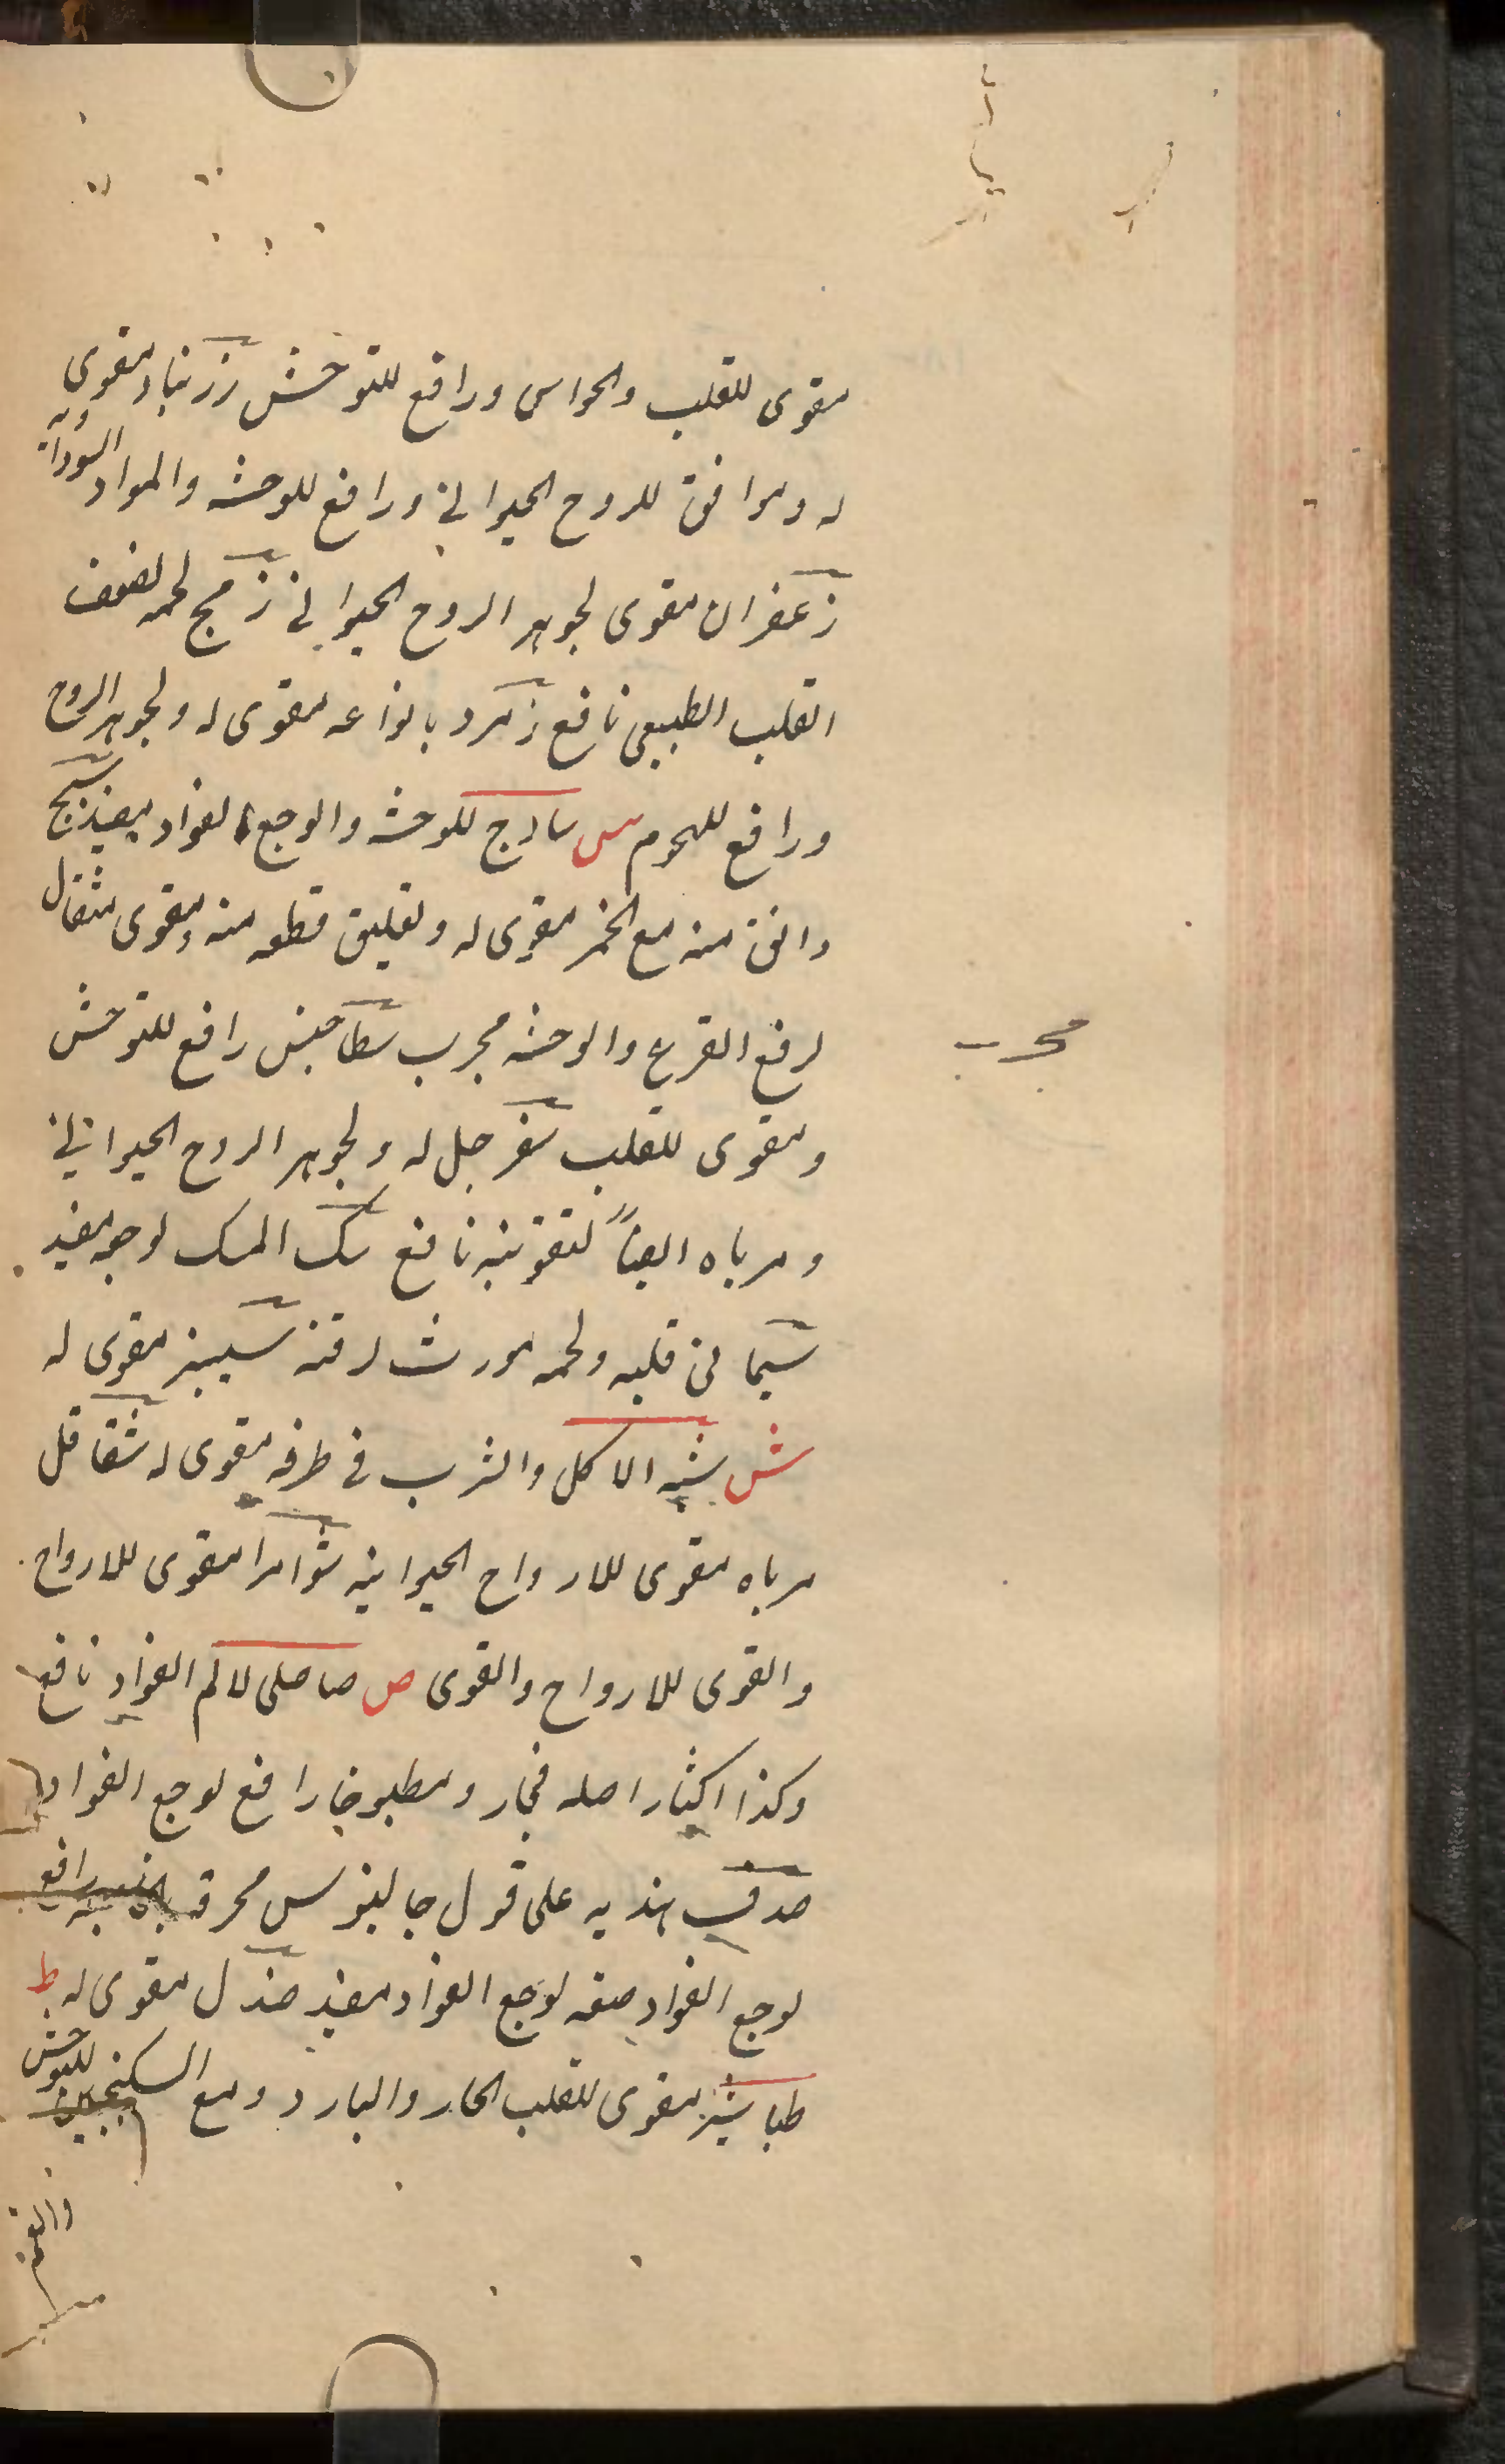 مقوى للقلب والحواس ورافع للتوحش زرنباد مقوى
له وموافق للروح الحيوانى ورافع للوحشه والمواد السوداويه
زعفران مقوى لجوهر الروح الحيوانى زمج لحمه لضعف
القلب الطبيعى نافع زمرد بانواعه مقوى له ولجوهر الروح
ورافع للهموم س سادج للوحشه والوجع الفواد مفيد سبج
دانق منه مع الخمر مقوى له وتعليق قطعه منه مقوى مثقال
لرفع الفزع والوحشه مجرب سطاحينس رافع للتوحش
مجرب
ومقوى للقلب سفرجل له ولجوهر الروح الحيوانى
ومرباه ايضاً لتقويته نافع سک المسک لوجعه مفيد
سيما من قلبه ولحمه مورث لرقته سيسنبر مقوى له
ش شبه الاكل والشرب فى ظرفه مقوى له شقاقل
مرباه مقوى للارواح الحيوانيه شوامرا مقوى للارواح
والقوى للارواح والقوى ص صاصلى لالم الفواد نافع
وكذا اكثار اصله فجار ومطبوخا رافع لوجع الفواد
صدف هنديه على قول جالينوس محرقه رافع
لوجع الفواد صقه لوجع الفواد مفيد صندل مقوى له ط
طباشير مقوى للقلب الحار والبارد ومع السكنجبين للتوحش
والغم